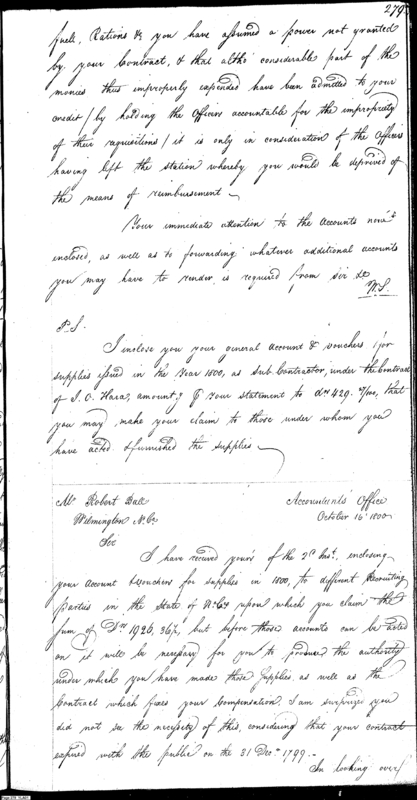 279
fuel, Rations &c you have assumed a power not granted
by your Contract, & that altho' considerable part of the
monies thus improperly expended have been admitted to your
credit / by holding the Officers accountable for the impropriety
of their requisitions / it is only in consideration of the Officers
having left the station whereby you would be deprived of
the means of reimbursement
Your immediate attention to the accounts now
inclosed, as well as to forwarding whatever additional accounts
you may have to render is required from Sir &c
W.S.
P.S.
I inclose you your general account & vouchers / for
supplies issued in the Year 1800, as sub Contractor, under the Contract
of J. O. Hara, amounts your statement to 429. that
you may make your claim to those under whom you
have acted & furnished the supplies
Mr Robert
Wilmington N. Ca
Sir
Accountants Office
October 16th 1800
I have received your's of the 2d Inst. enclosing
your account & vouchers for supplies in 1800, to different Recruiting
parties in the State of N. Ca upon which you claim the
sum of 1926, but before those accounts can be acted
on it will be necessary for you to produce the authority
under which you have made those supplies as well as the
Contract which fixes your Compensation. I am surprized you
did not see the necessity of this, considering that your contract
expired with the public on the 31 Decr 1799.
In looking over/